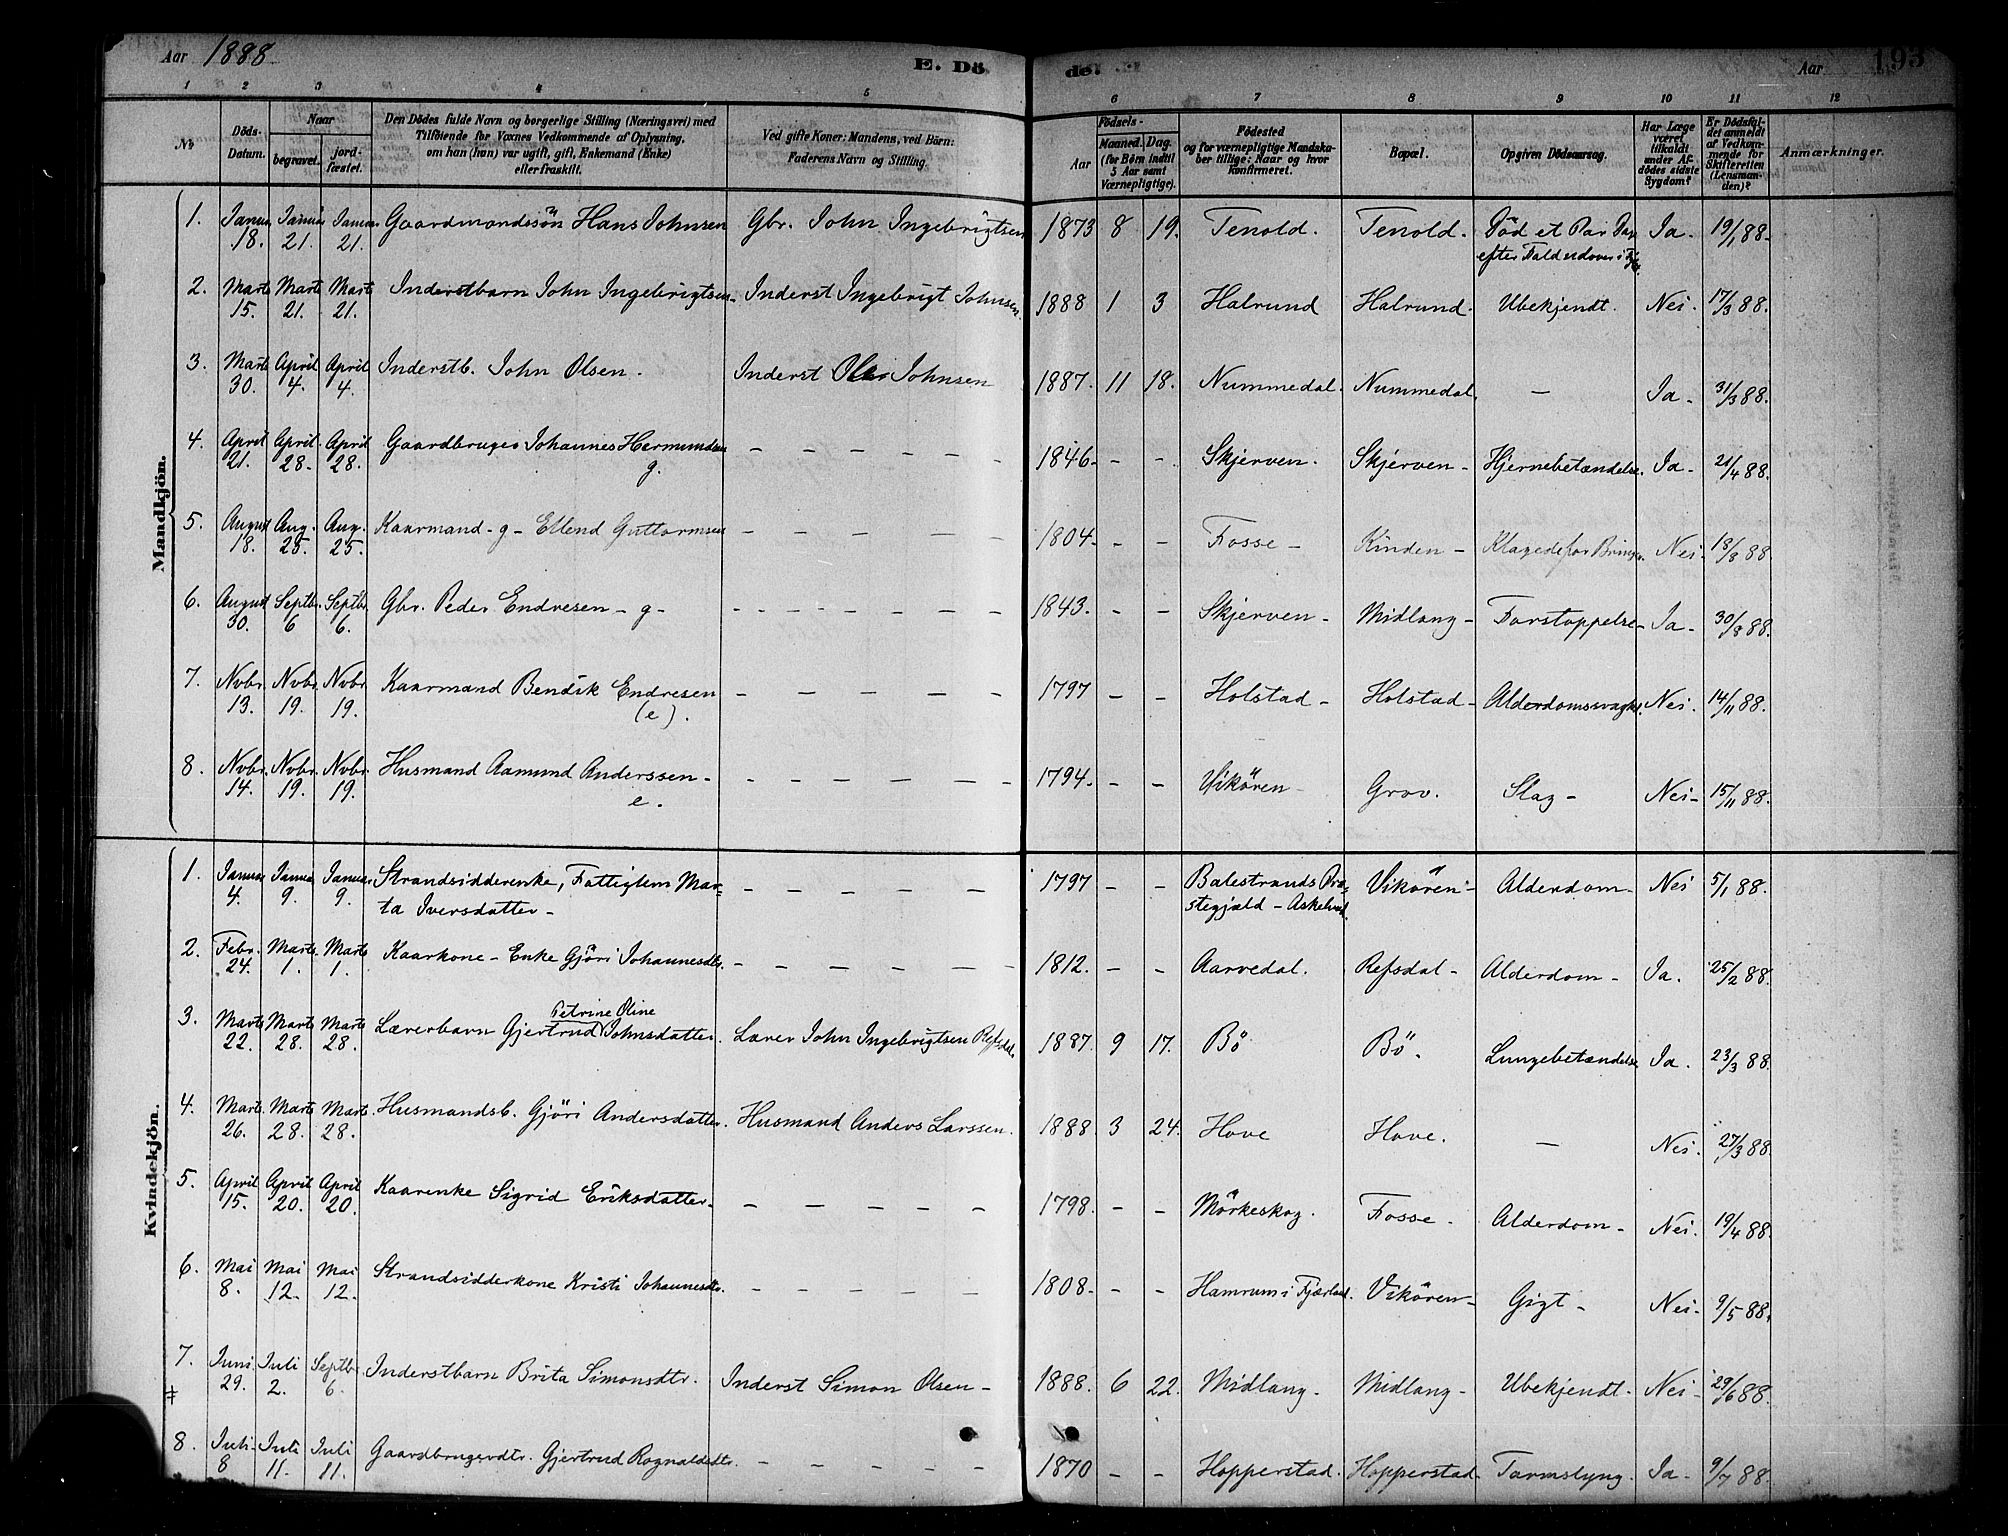 Aar 1888 E. Döde. Aar 193
1 2 3 4 5 6 7 8 9 10 11 12
No Döds-Datum. Naar begravet. jordfæstet. Den Dödes fulde Navn og borgerlige Stilling (Næringsvei) med Tilföiende for Voxnes Vedkommende af Oplysning, om han (hun) var ugift, gift, Enkemand (Enke) eller fraskilt. Ved gifte Koner: Mandens, ved Börn: Faderens Navn og Stilling. Födsels- Aar Maaned. Dag. (for Börn indtil 5 Aar samt Værnepligtige). Födested og for værnepligtige Mandskaber tillige: Naar og hvor konfirmeret. Bopæl. Opgiven Dödsaarsag. Har Læge været tilkaldt under Afdödes sidste Sygdom? Er Dödsfaldet anmeldt af Vedkommende for Skifteretten (Lensmanden)? Anmærkninger.
Mandkjön.
1. Januar 18. Januar 21. Januar 21. Gaardmandssön Hans Johnsen Gbr. John Ingebrigtsen 1873 8 19. Tenold. Tenold. Död et Par Dage efter Fald udover i Ja. 19/1 88.
2. Marts 15. Marts 21. Marts 21. Inderstbarn John Ingebrigtsen Inderst Ingebrigt Johnsen. 1888 1 3 Halrund Halrund. Ubekjendt. Nei. 17/3 88.
3. Marts 30. April 4. April 4. Inderstb. John Olsen. Inderst Ole Johnsen 1887. 11 18. Nummedal. Nummedal. — Ja. 31/3 88.
4. April 21. April 28. April 28. Gaardbruger Johannes Hermundsen g. — — — — — 1846 - - Skjerven. Skjerven - Hjernebetændelse. Ja - 21/4 88.
5. August 18. Aug. 25. Aug. 25. Kaarmand - g - Ellend Guttormsen — — — — — 1804 - - Fosse - Kinden - Klagede for Bringen. Nei. 18/8 88
6. August 30. Septbr. 6 Septbr. 6. Gbr. Peder Endresen - g - — — — — — 1843. - - Skjerven - Midlang - Forstoppelse - Ja - 30/8 88.
7. Nvbr. 13. Nvbr. 19. Nvbr. 19. Kaarmand Bendik Endresen (e). — — — — — 1797 - - Holstad - Holstad - Alderdomssvaghd. Nei. 14/11 88.
8. Nvbr. 14. Nvbr. 19. Nvbr. 19. Husmand Aamund Anderssen - e. — — — — — 1794. - - Vikören - Grov. Slag - Nei - 15/11 88.
Kvindekjön.
1. Januar 4. Januar 9. Januar 9. Strandsidderenke, Fattiglem Marta Iversdatter - — — — — — 1797 - - Balestrands Præstegjæld - Askelund Vikören - Alderdom - Nei 5/1 88.
2. Febr. 24. Marts 1. Marts 1. Kaarkone - Enke Gjöri Johannesdtr. — — — — — 1812. - - Aarvedal. Refsdal - Alderdom - Ja. 25/2 88.
3. Marts 22. Marts 28. Marts 28. Lærerbarn Gjertrud Petrine Oline Johnsdatter. Lærer John Ingebrigtsen Refsdal. 1887. 9 17. Bö Bö. Lungebetændelse Ja. 23/3 88.
4. Marts 26. Marts 28. Marts 28. Husmandsb. Gjöri Andersdatter. Husmand Anders Larssen. 1888. 3 24. Hove Hove. — Nei. 27/3 88.
5. April 15. April 20. April 20. Kaarenke Sigrid Eriksdatter. — — — — — 1798. - - Mörkeskog. Fosse. Alderdom - Nei. 19/4 88.
6. Mai 8. Mai 12. Mai 12. Strandsidderkone Kristi Johannesdtr. — — — — — 1808. - - Hamrum i Fjærland. Vikören - Gigt - Nei - 9/5 88.
7. Juni 29. Juli 2. Septbr. 6. Inderstbarn Brita Simonsdtr. Inderst Simon Olsen - 1888. 6 22. Midlang. Midlang - Ubekjendt. Nei - 29/6 88.
8. Juli 8 Juli 11. Juli 11. Gaardbrugerdtr. Gjertrud Rognaldsdtr. — — — — — 1870 - - Hopperstad. Hopperstad. Tarmslyng. Ja - 9/7 88.